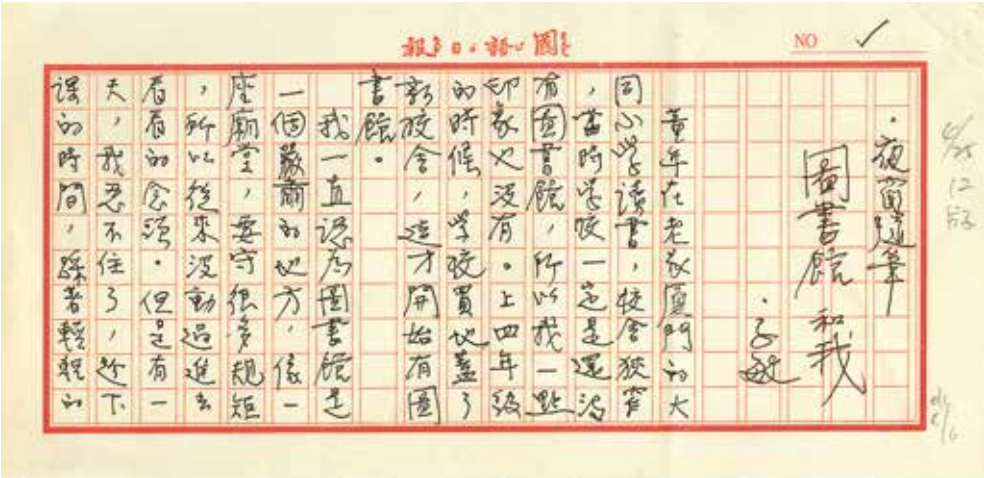 國語日報
NO ✓
4/25
12版
・夜窗隨筆
圖書館和我
・子敏
童年在老家廈門的大
同小學讀書,校舍狹窄
,當時學校一定是還沒
有圖書館,所以我一點
印象也沒有。上四年級
的時候,學校買地蓋了
新校舍,這才開始有圖
書館。
我一直認為圖書館是
一個嚴肅的地方,像一
座廟堂,要守很多規矩
,所以從來沒動過進去
看看的念頭。但是有一
天,我忍不住了,趁下
課的時間,踩著輕輕的